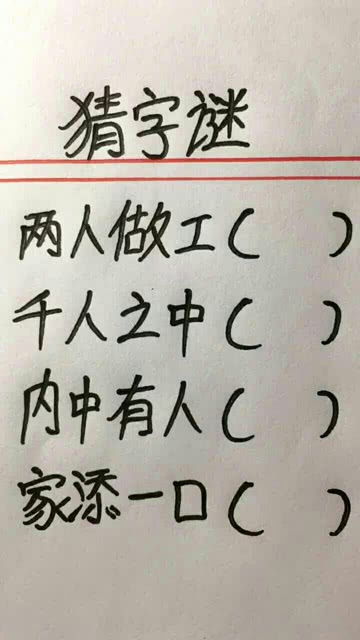 猜字谜
两人做工( )
千人之中( )
内中有人( )
家添一口( )